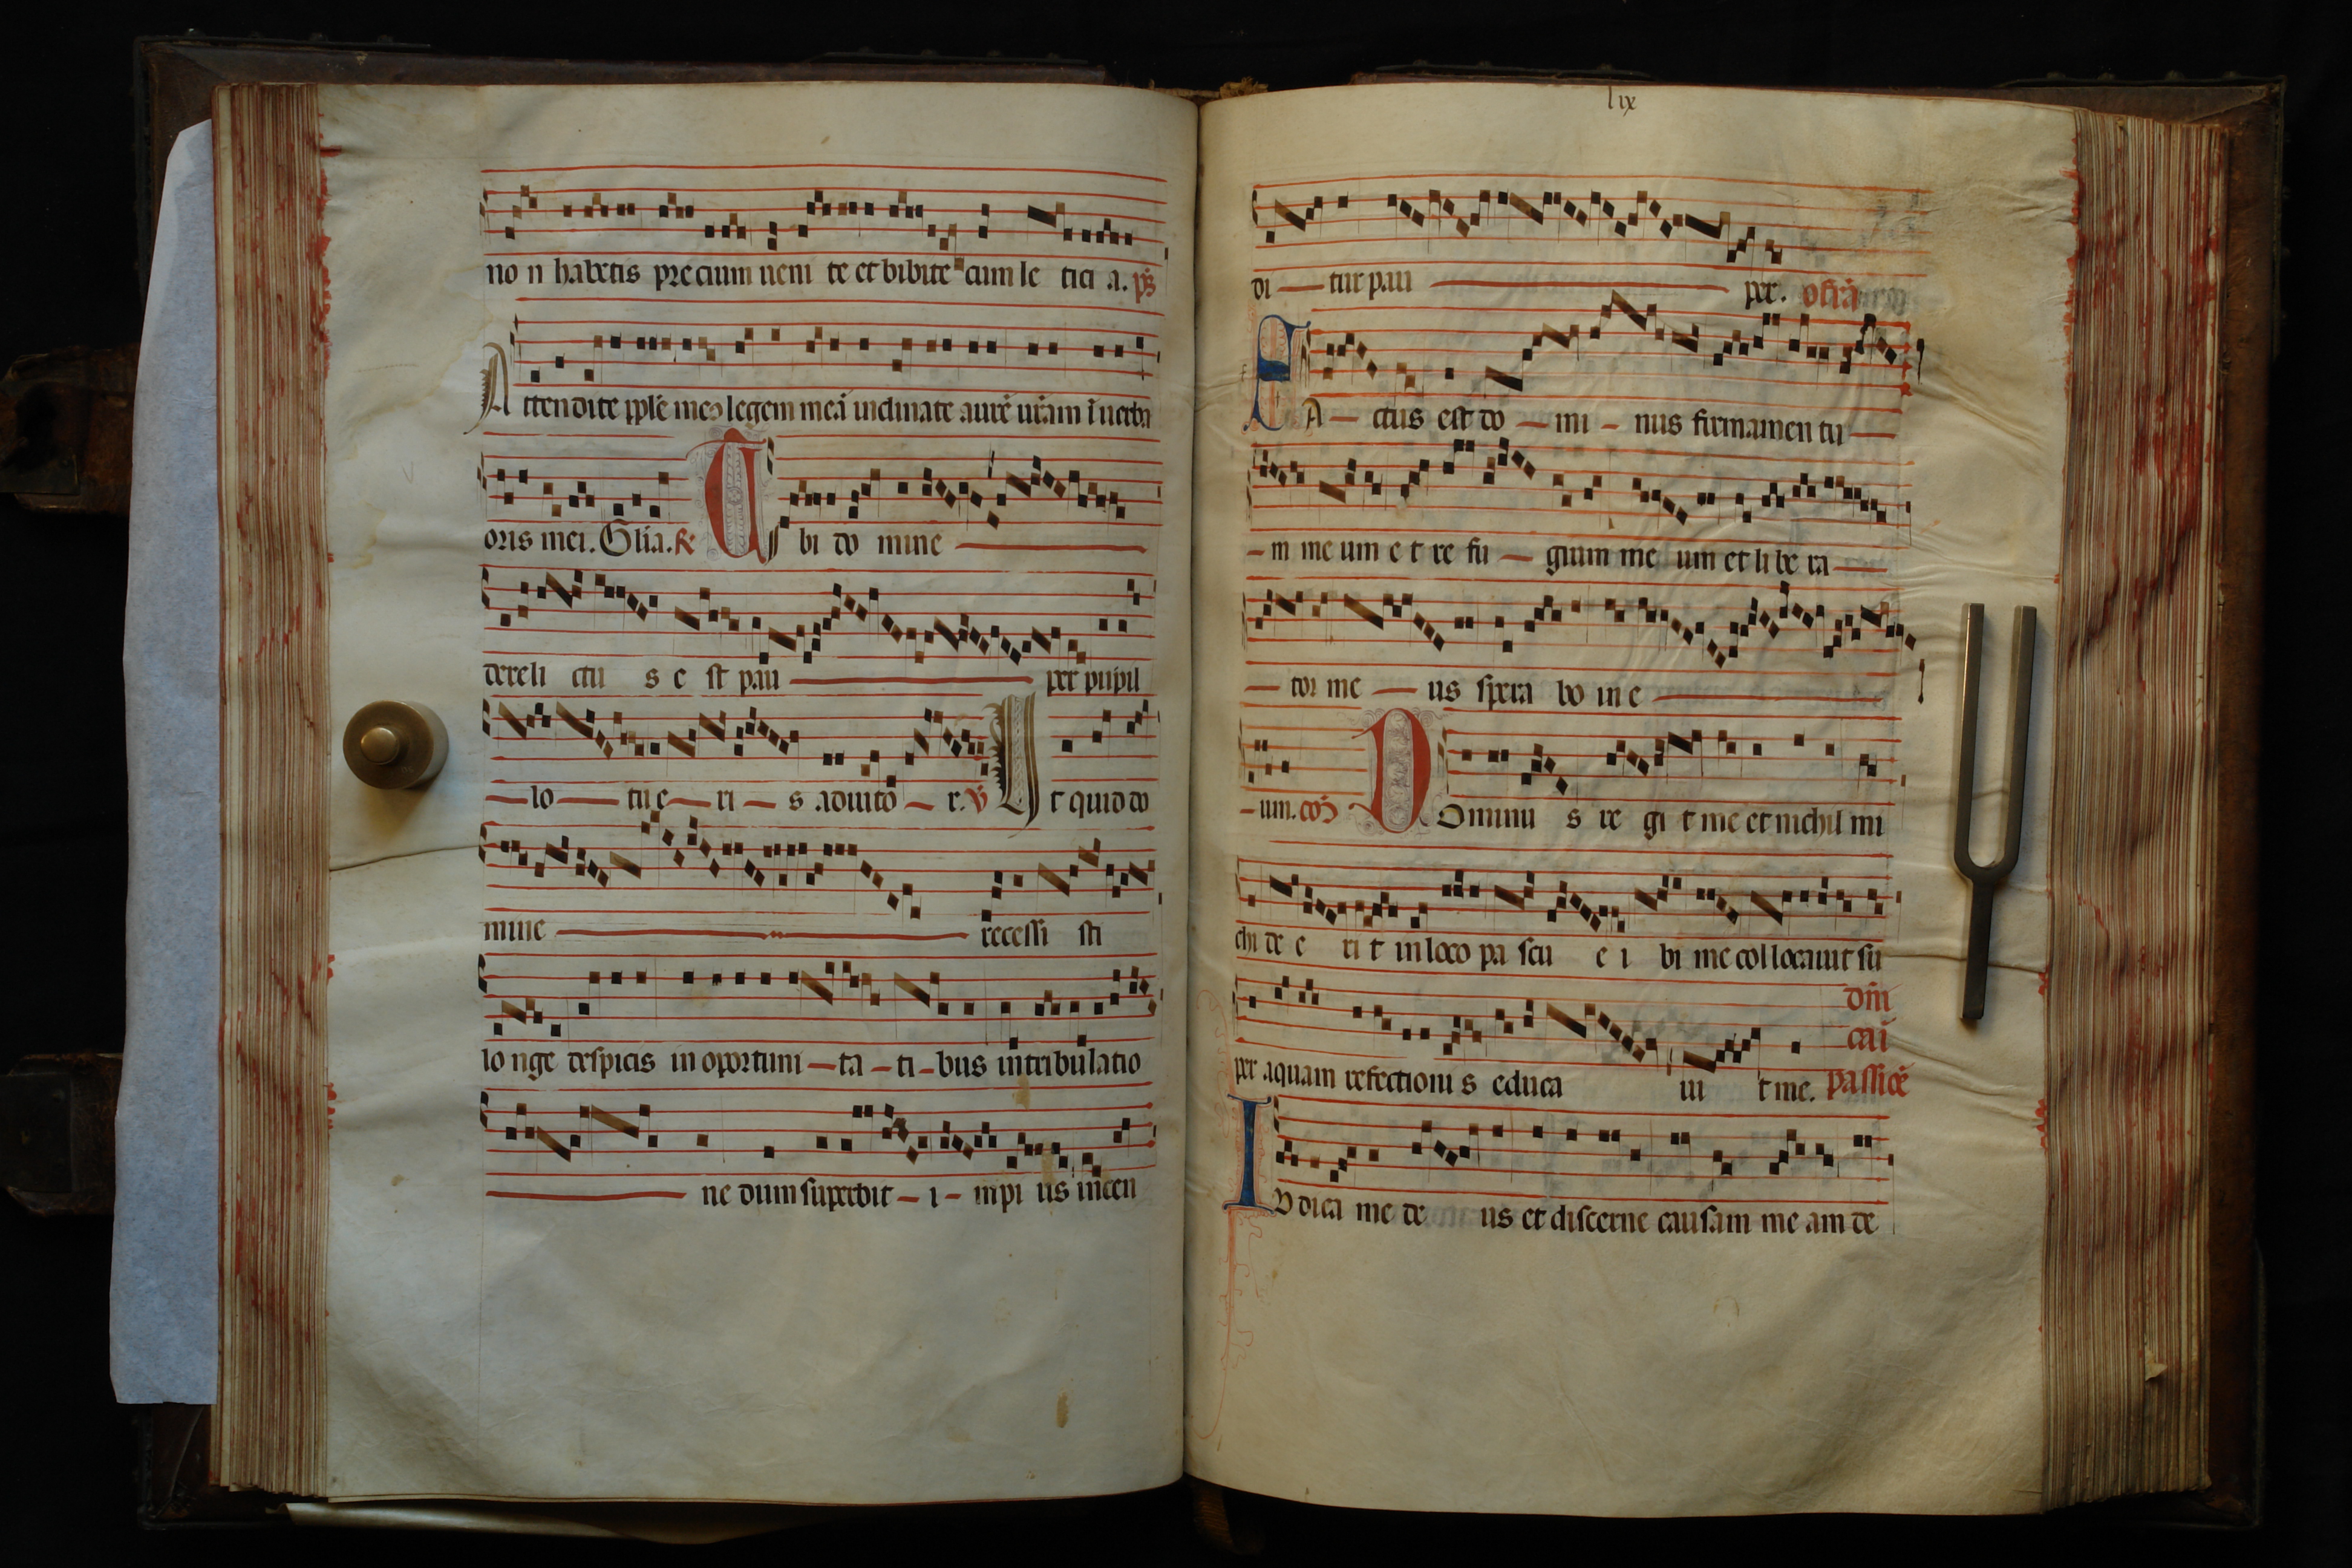 no n habetis precium ueni te et bibite cum le tici a. ps̄
Attendite pple meꝰ legem meā inclinate aurē urām ī uerba
oris mei. Glīa. R̄ Tibi do mine
dereli ctu s e st pau per pupil
lo tu e ri s adiuto r. V̄ Ut quid do
mine recessi sti
lo nge despicis in oportuni ta ti bus in tribulatio
ne dum superbit i mpi us incen
lix
di tur pau per. offrā
FActus est do mi nus firmamen tu
m me um e t re fu gium me um et li be ra
tor me us spera bo in e
um. cōɔ Dominu s re gi t me et nichil mi
chi de e ri t in loco pa scu e i bi me col locauit su
dm̄
per aquam refectioni s educa ui t me. cai passiōē
IUdica me de us et discerne causam me am de